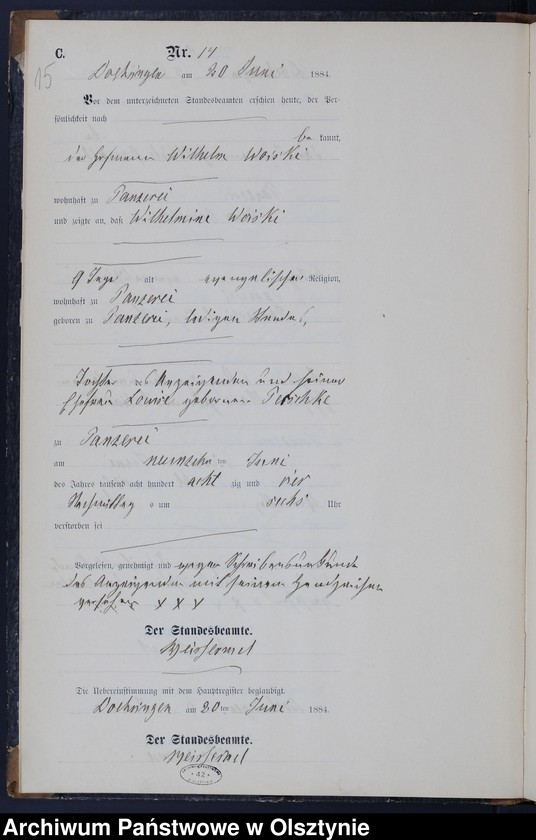 C. Nr. 14
15
Doehringen am 20 Juni 1884.
Vor dem unterzeichneten Standesbeamten erschien heute, der Per-
sönlichkeit nach
be kannt,
der Hofmann Wilhelm Woiski
wohnhaft zu Panzerei
und zeigte an, daß Wilhelmine Woiski
9 Tage alt evangelischer Religion,
wohnhaft zu Panzerei
geboren zu Panzerei, ledigen Standes,
Tochter des Anzeigenden und seiner
Ehefrau Louise geborenen Peschke
zu Panzerei
am neunzehn ten Juni
des Jahres tausend acht hundert acht zig und vier
Nachmittag s um sechs Uhr
verstorben sei
Vorgelesen, genehmigt und wegen Schreibensunkunde
des Anzeigenden mit seinem Handzeichen
versehen x x x
Der Standesbeamte.
Weissermel
Die Uebereinstimmung mit dem Hauptregister beglaubigt.
Doehringen am 20 ten Juni 1884.
Der Standesbeamte.
Weissermel
42
Archiwum Państwowe w Olsztynie